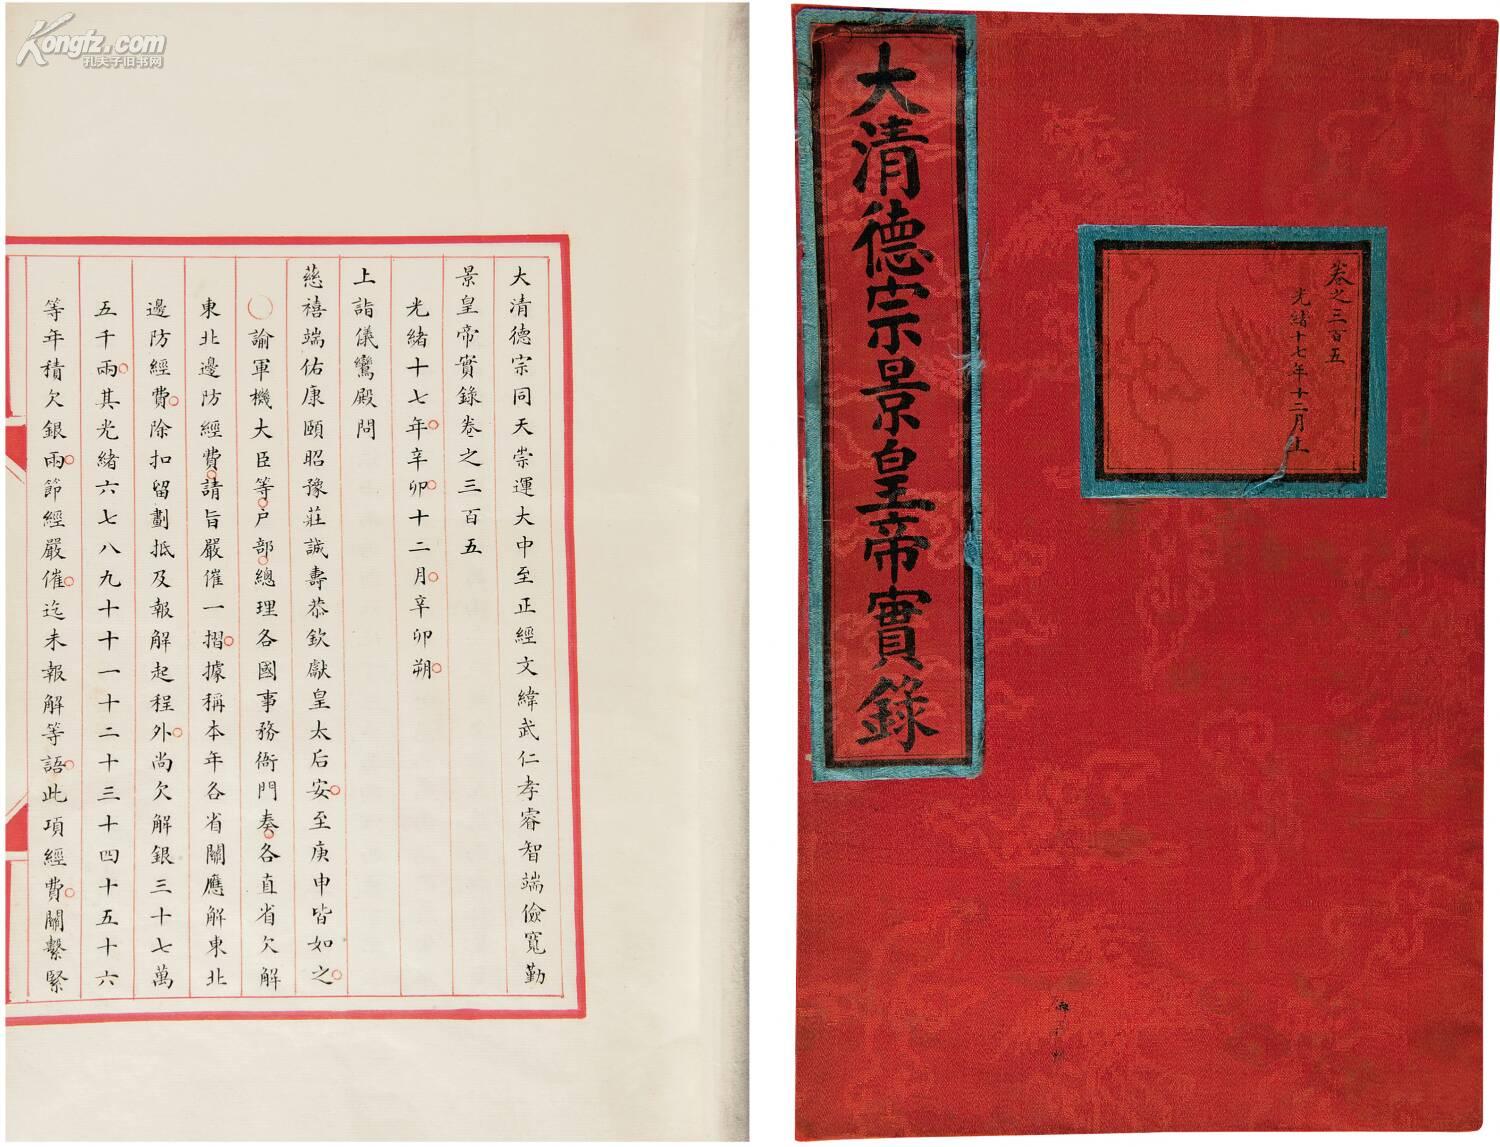 Kongfz.com
孔夫子旧书网
大清德宗同天崇運大中至正經文緯武仁孝睿智端儉寬勤
景皇帝實錄卷之三百五
光緒十七年辛卯十二月辛卯朔
上詣儀鸞殿問
慈禧端佑康頤昭豫莊誠壽恭欽獻皇太后安至庚申皆如之
○諭軍機大臣等戶部總理各國事務衙門奏各直省欠解
東北邊防經費請旨嚴催一摺據稱本年各省關應解東北
邊防經費除扣留劃抵及報解起程外尚欠解銀三十七萬
五千兩其光緒六七八九十十一十二十三十四十五十六
等年積欠銀兩節經嚴催迄未報解等語此項經費關繫緊
大清德宗景皇帝實錄
卷之三百五
光緒十七年十二月上